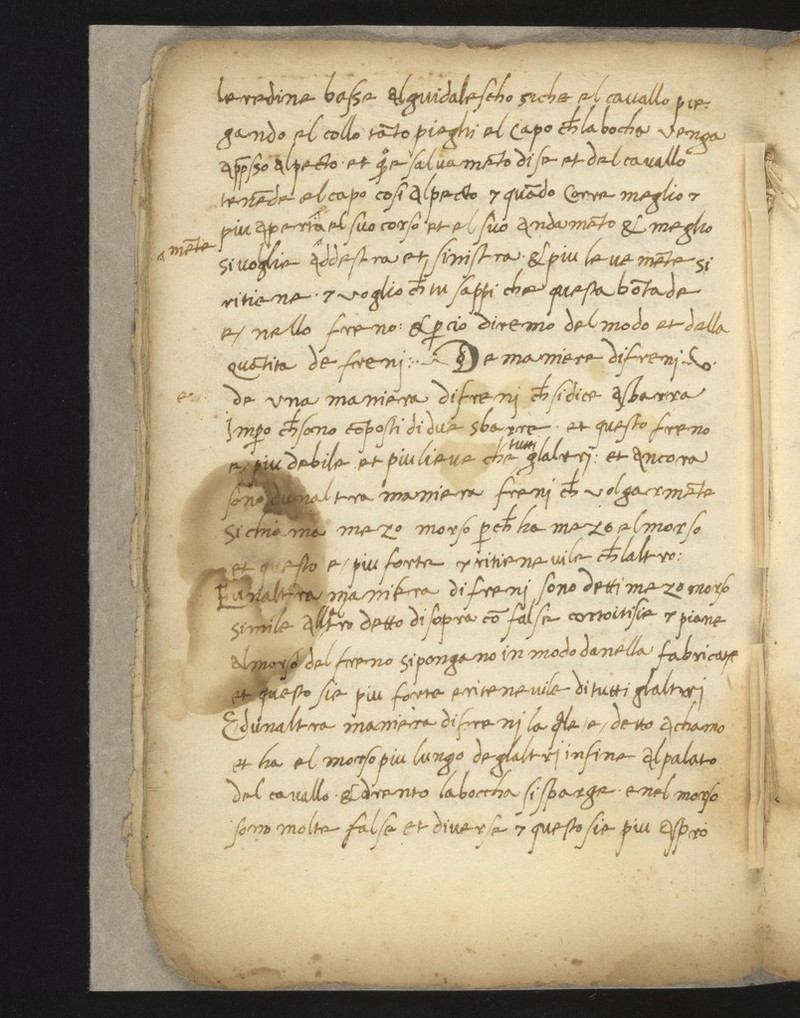 le redine basse al guidalescho siche el cavallo pie-
gando el collo tāto pieghi el capo ch̄ la bocha venga
appsso al pecto · et q̄e salvamēto di se et del cavallo
tenēde el capo cosi al pecto ⁊ quādo corre meglio ⁊
piu aperta el suo corso et el suo andamēto & meglio
amēte
si voglie addestra et sinistra · & piu levemēte si
ritiene · ⁊ voglio ch̄ tu sappi che questa bōtade
e / nello freno : & p̄cio diremo del modo et della
quātita de frenj : De maniere di frenj
e
de una maniera di frenj ch̄ si dice asbarra
Imp̄o ch̄ sono cōposti di due sbarre · et questo freno
tutti
e / piu debile et piu lieve che glaltrj : et ancora
sono dunaltra maniera frenj ch̄ volgarmēte
si chiama mezo morso p̄ch̄ ha mezo el morso
et questo e / piu forte ⁊ ritenevile ch̄ laltro :
Eunaltra maniera di frenj sono detti mezo morso
simile allltro detto di sopra cō false ⁊ piane
al morso del freno si pongano in modo danella fabricate
et questo sie piu forte e ritenevile di tutti glaltrj
E dunaltra maniera di frenj la q̄le / e / detto achamo
et ha el morso piu lungo de glaltrj infine al palato
del cavallo · & drento la boccha si sparge · e nel morso
sono molte false et diverse ⁊ questo sie piu aspro